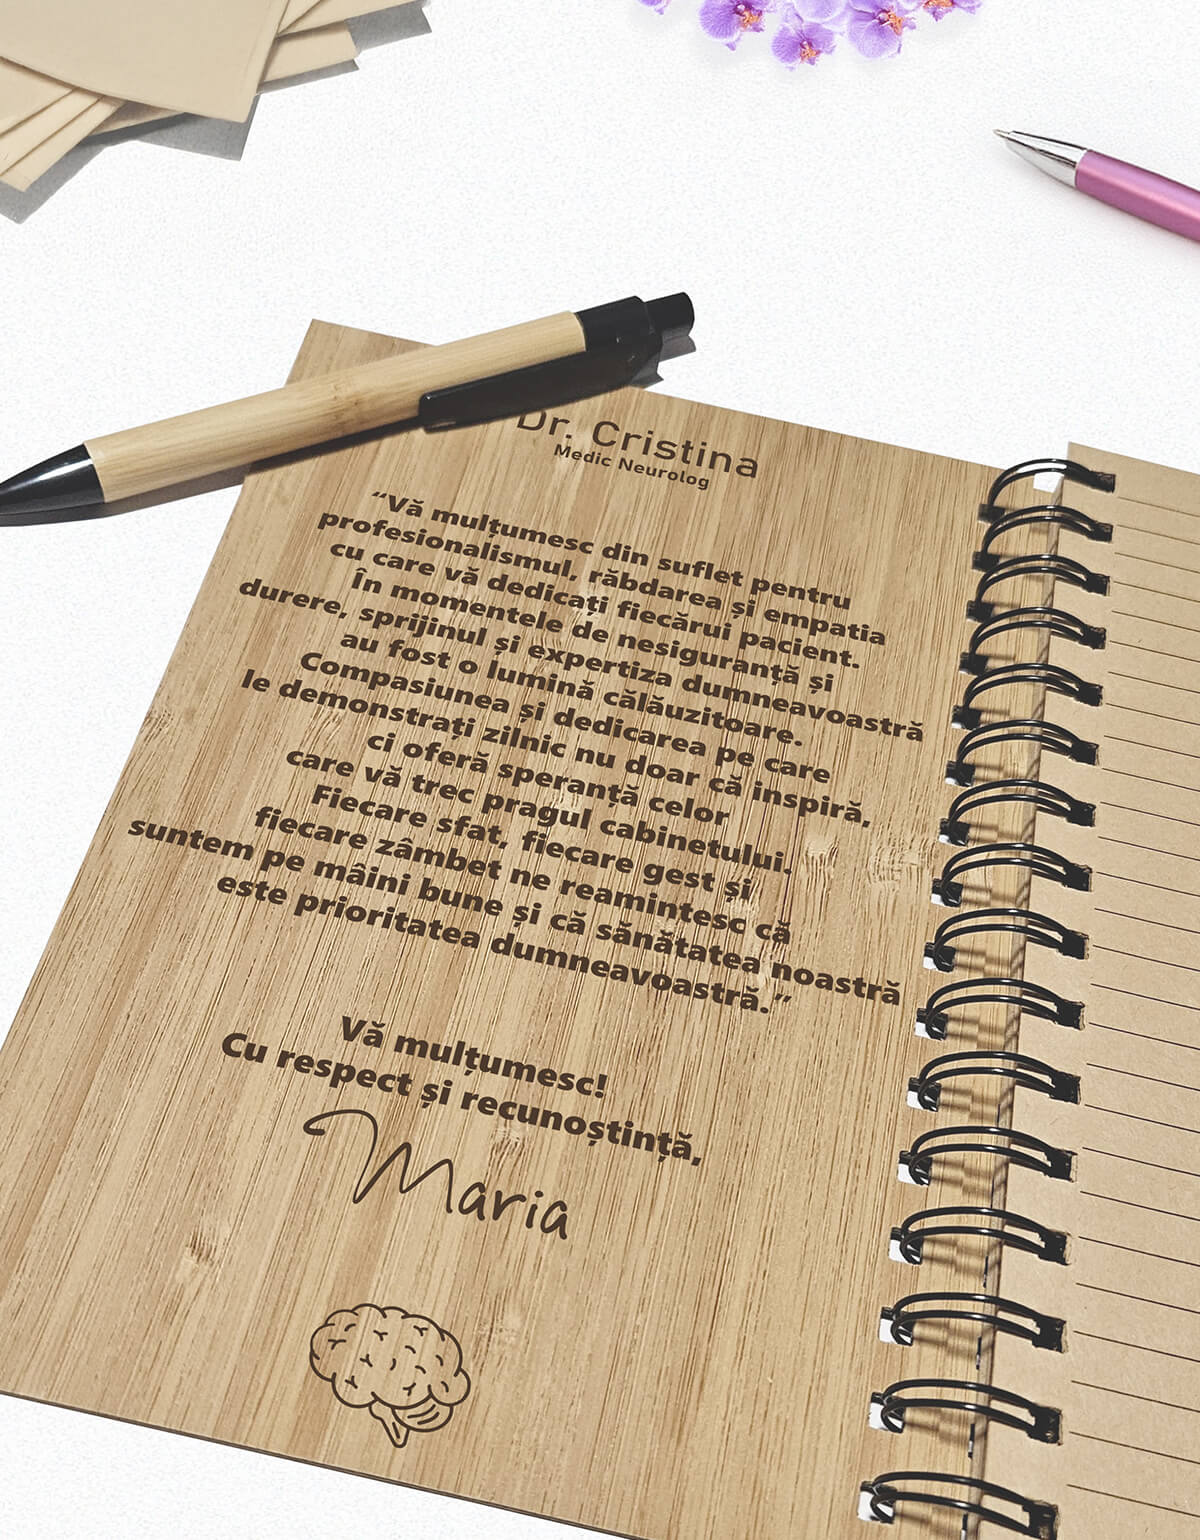 Dr. Cristina
Medic Neurolog
“Vă mulțumesc din suflet pentru
profesionalismul, răbdarea și empatia
cu care vă dedicați fiecărui pacient.
În momentele de nesiguranță și
durere, sprijinul și expertiza dumneavoastră
au fost o lumină călăuzitoare.
Compasiunea și dedicarea pe care
le demonstrați zilnic nu doar că inspiră,
ci oferă speranță celor
care vă trec pragul cabinetului.
Fiecare sfat, fiecare gest și
fiecare zâmbet ne reamintesc că
suntem pe mâini bune și că sănătatea noastră
este prioritatea dumneavoastră.”
Vă mulțumesc!
Cu respect și recunoștință,
Maria